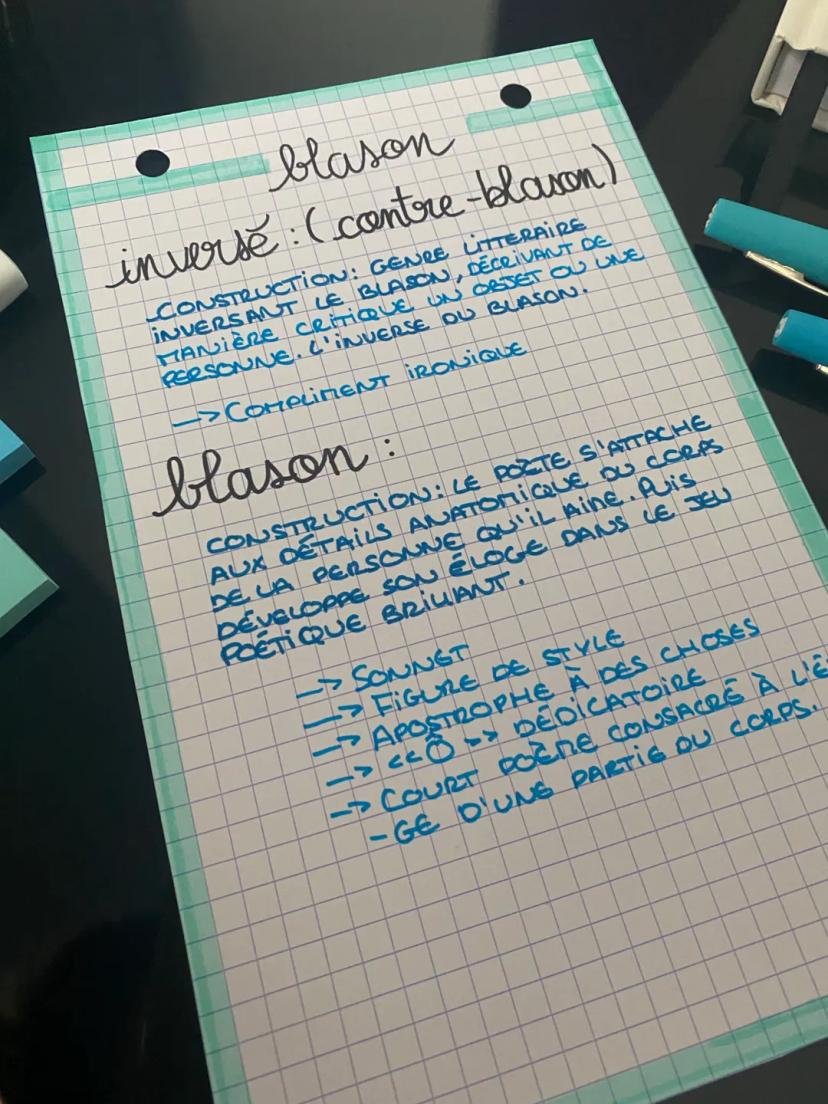 blason
inversé : (contre-blason)
CONSTRUCTION : GENRE LITTERAIRE
INVERSANT LE BLASON, DÉCRIVANT DE
MANIÈRE CRITIQUE UN OBJET OU UNE
PERSONNE. L'INVERSE DU BLASON.
—> COMPLIMENT IRONIQUE
blason :
CONSTRUCTION : LE POÈTE S'ATTACHE
AUX DÉTAILS ANATOMIQUE DU CORPS
DE LA PERSONNE QU'IL AIME. PUIS
DÉVELOPPE SON ÉLOGE DANS LE JEU
POÉTIQUE BRILLANT.
—> SONNET
—> FIGURE DE STYLE
—> APOSTROPHE À DES CHOSES
—> <<Ô>> DÉDICATOIRE
—> COURT POÈME CONSACRÉ À L'É
-GE D'UNE PARTIE DU CORPS.